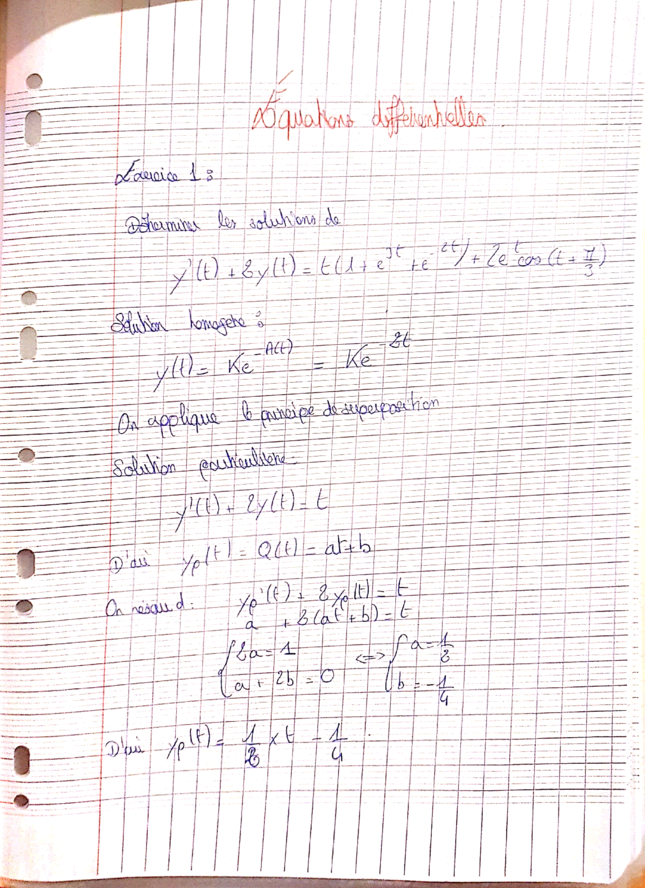 Équations différentielles.
Exercice 1 :
Déterminer les solutions de
y'(t) + 2y(t) = t(1 + e^{3t} + e^{-2t}) + 2e^{t}cos(t + π/3)
Solution homogène :
y(t) = Ke^{-A(t)} = Ke^{-2t}
On applique le principe de superposition
Solution particulière
y'(t) + 2y(t) = t
D'où yp(t) = Q(t) = at+b
On résoud : yp'(t) + 2yp(t) = t
a + 2(at + b) = t
{2a = 1 <=> {a = 1/2
{a + 2b = 0 {b = -1/4
D'où yp(t) = 1/2 × t - 1/4.